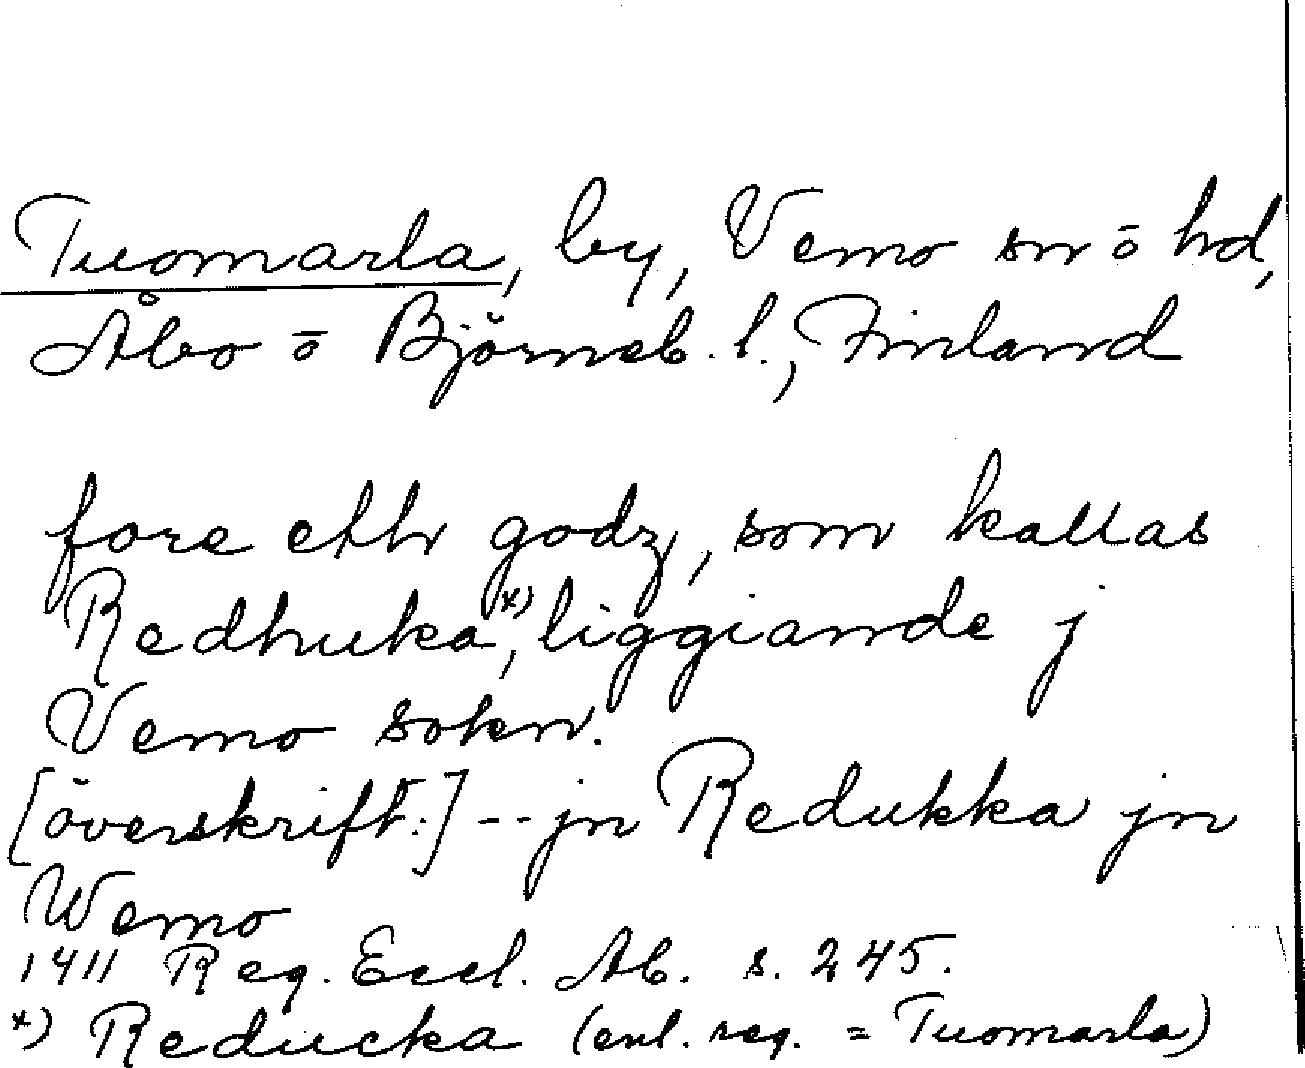 Tuomarla, by, Vemo sn ō hd,
Åbo ō Björneb. l., Finland
fore etthr godz, som kallas
Redhuka *), liggiande j
Vemo sokn.
[överskrift:] -- jn Redukka jn
Wemo
1411 Reg. Eccl. Ab. s. 245.
*) Reducka (enl. reg. = Tuomarla)